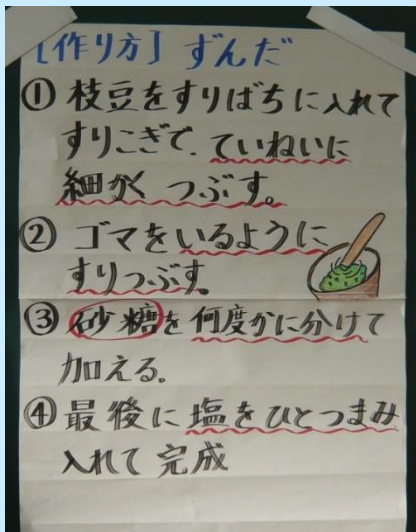 [作り方] ずんだ
① 枝豆をすりばちに入れて
すりこぎで、ていねいに
細かく つぶす。
② ゴマをいるように
すりつぶす。
③ 砂糖を何度かに分けて
加える。
④ 最後に塩をひとつまみ
入れて 完成